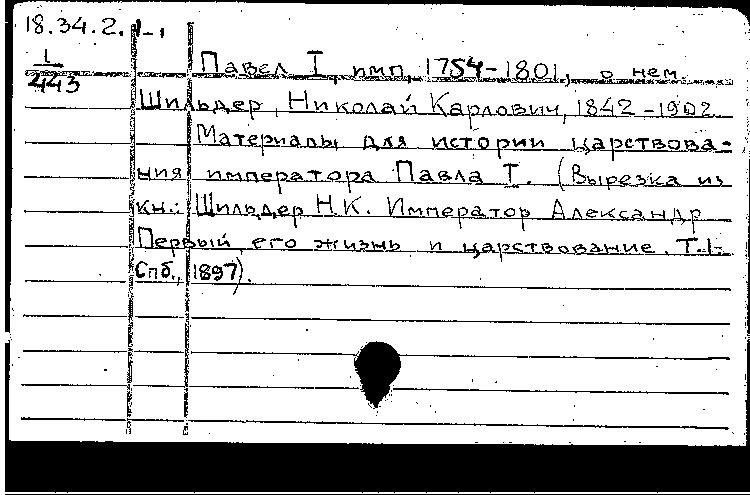 18.34.2.
1
443
Павел I, имп, 1754-1801, о нем.
Шильдер, Николай Карлович, 1842-1902
Материалы для истории царствова-
ния императора Павла I. (Вырезка из
кн.: Шильдер Н.К. Император Александр
Первый, его жизнь и царствование. Т.I.
Спб., 1897).